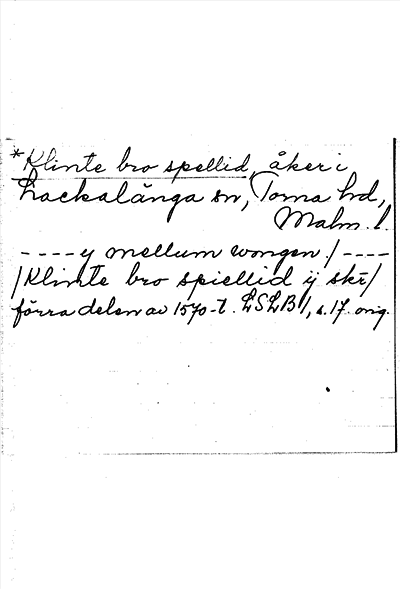 *Klinte bro spellid, åker i
Lackalänga sn, Torna hd,
Malm. l.
- - - - y mellum wongen / - - - -
/ Klinte bro spiellid ij skr /
förra delen av 1570-t. LSLB 1, s. 17. orig.